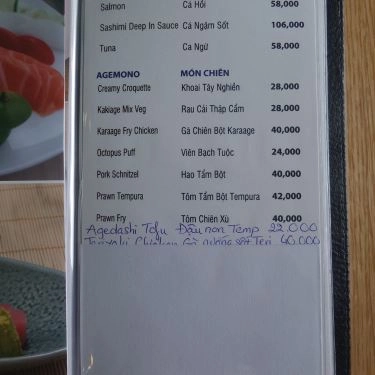 Salmon Cá Hồi 58,000
Sashimi Deep In Sauce Cá Ngâm Sốt 106,000
Tuna Ca Ngừ 58,000
AGEMONO MÓN CHIÊN
Creamy Croquette Khoai Tây Nghiền 28,000
Kakiage Mix Veg Rau Cải Thập Cẩm 28,000
Karaage Fry Chicken Gà Chiên Bột Karaage 40,000
Octopus Puff Viên Bạch Tuộc 24,000
Pork Schnitzel Hao Tẩm Bột 40,000
Prawn Tempura Tôm Tẩm Bột Tempura 42,000
Prawn Fry Tôm Chiên Xù 40,000
Agedashi Tofu Đậu non Temp 22.000
Teriyaki Chicken Gà nướng sốt Teri 40.000